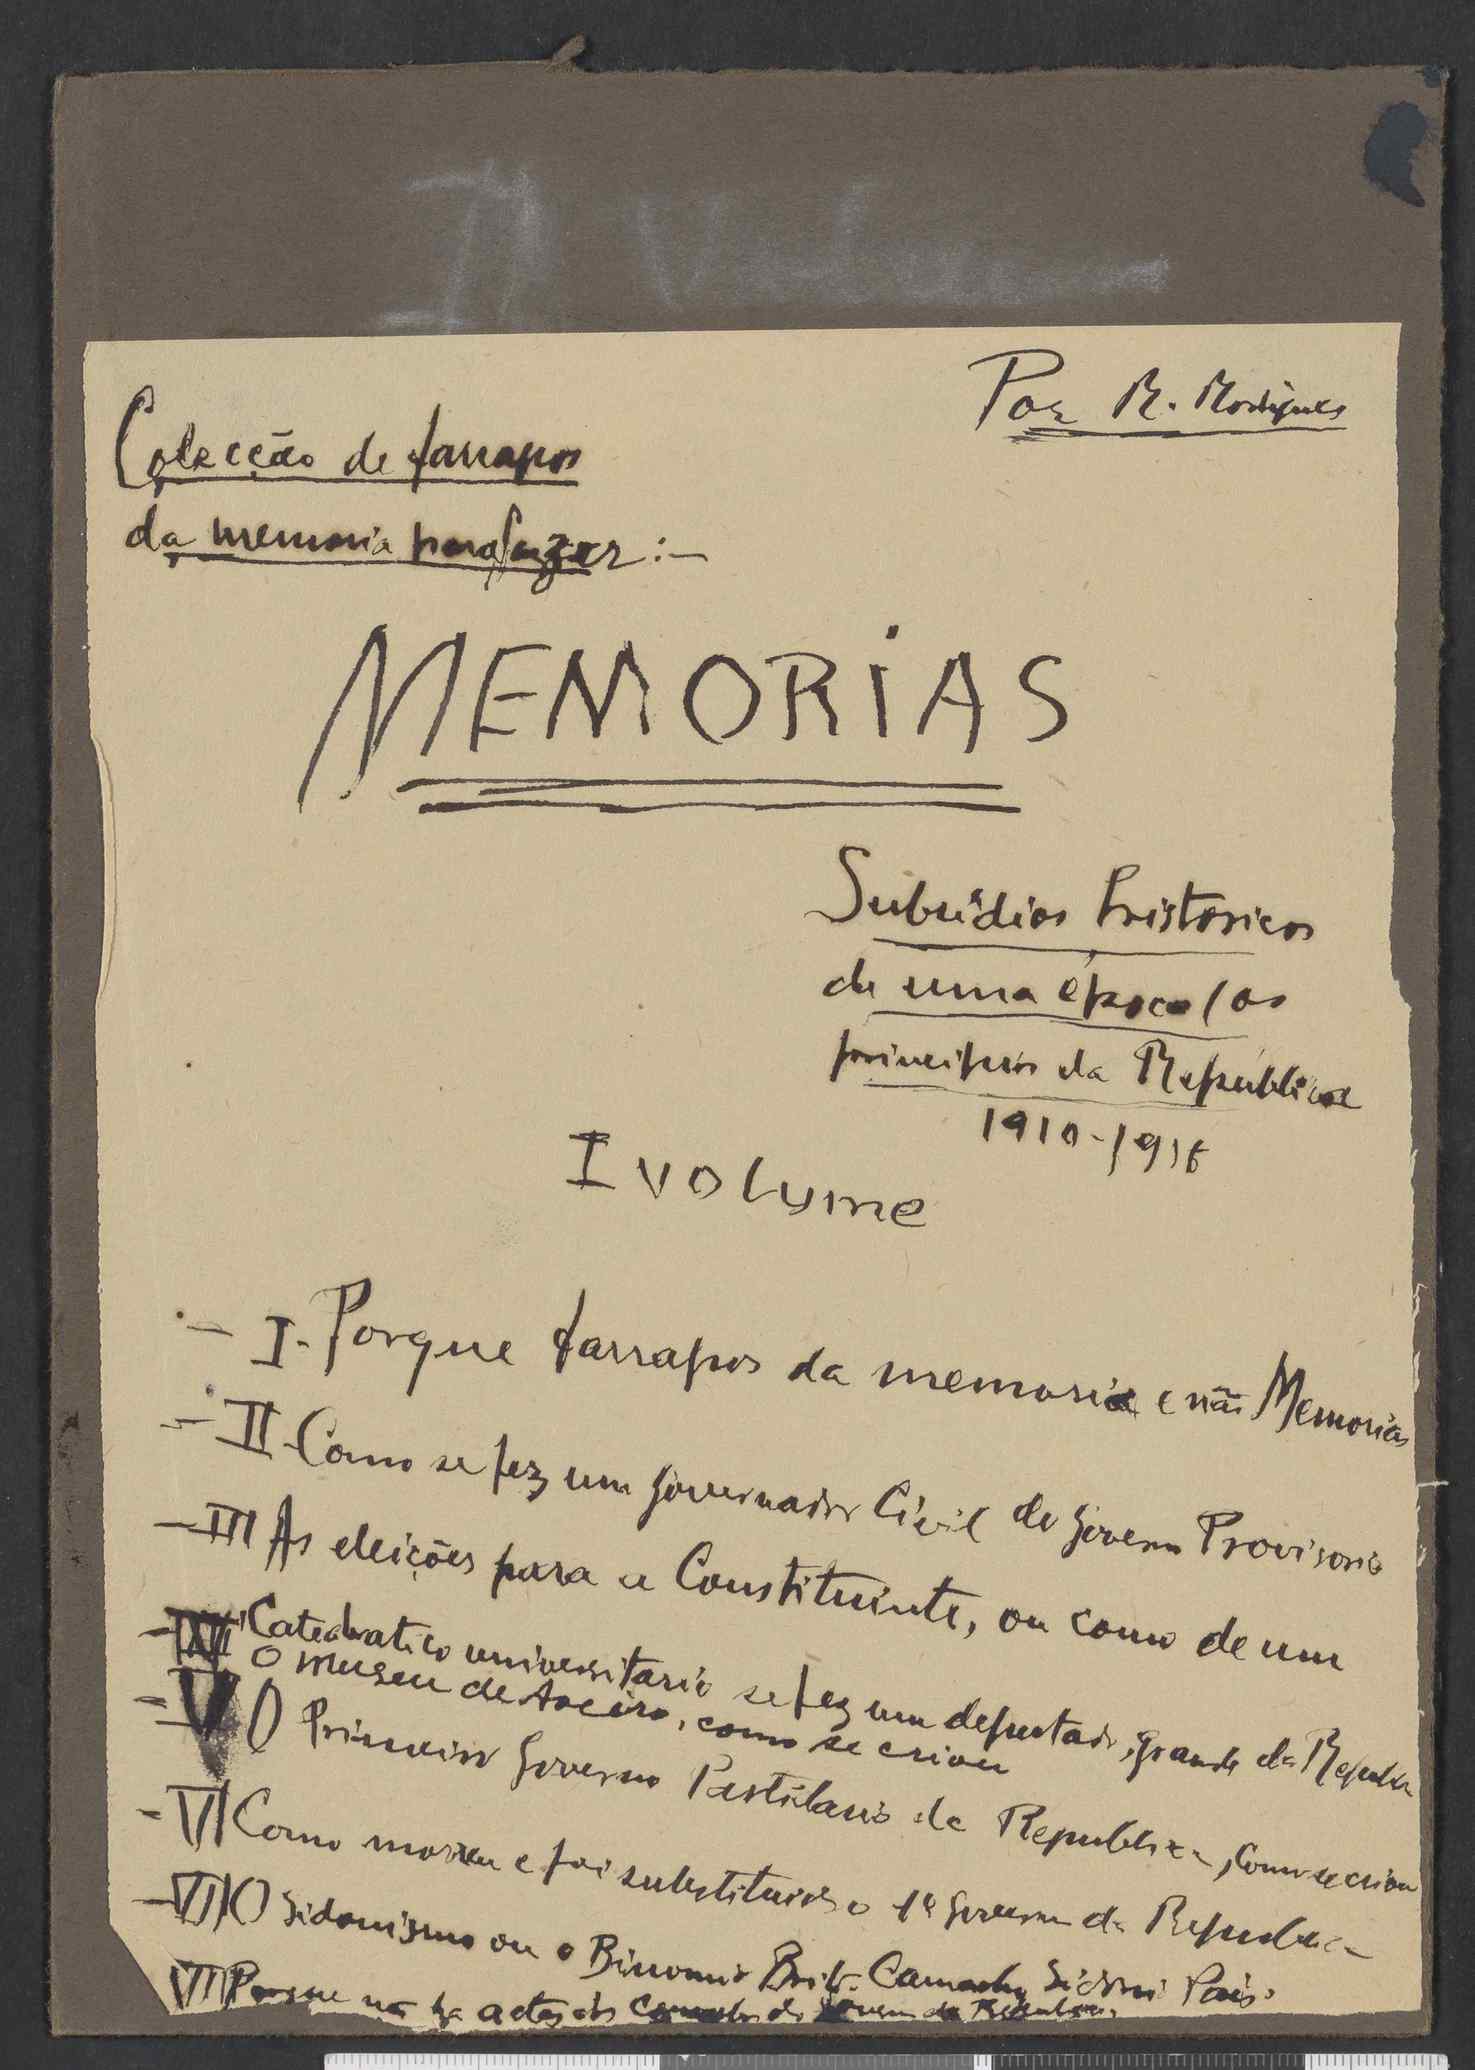 II Volume
Por R. Rodrigues
Colecção de farrapos
da memoria para fazer :-
MEMORIAS
Subsídios historicos
de uma época (os
principios da República
1910-1916
I volume
- I- Porque farrapos da memoria e não Memorias
- II- Como se fez um governador Civil do Governo Provisorio
- III As eleições para a Constituinte, ou como de um
Catedratico universitario se fez um deputado, grande da Republica
- IV O museu de Aveiro, como se criou
- V O Primeiro Governo Partidario da Republica, como se criou
- VI Como morreu e foi substituido o 1º Governo da Republica
- VII O Sidonismo ou o Binomio Brito Camacho Sidonio Pais.
VIII Porque não ha actas dos Conselhos do Governo da Republica.